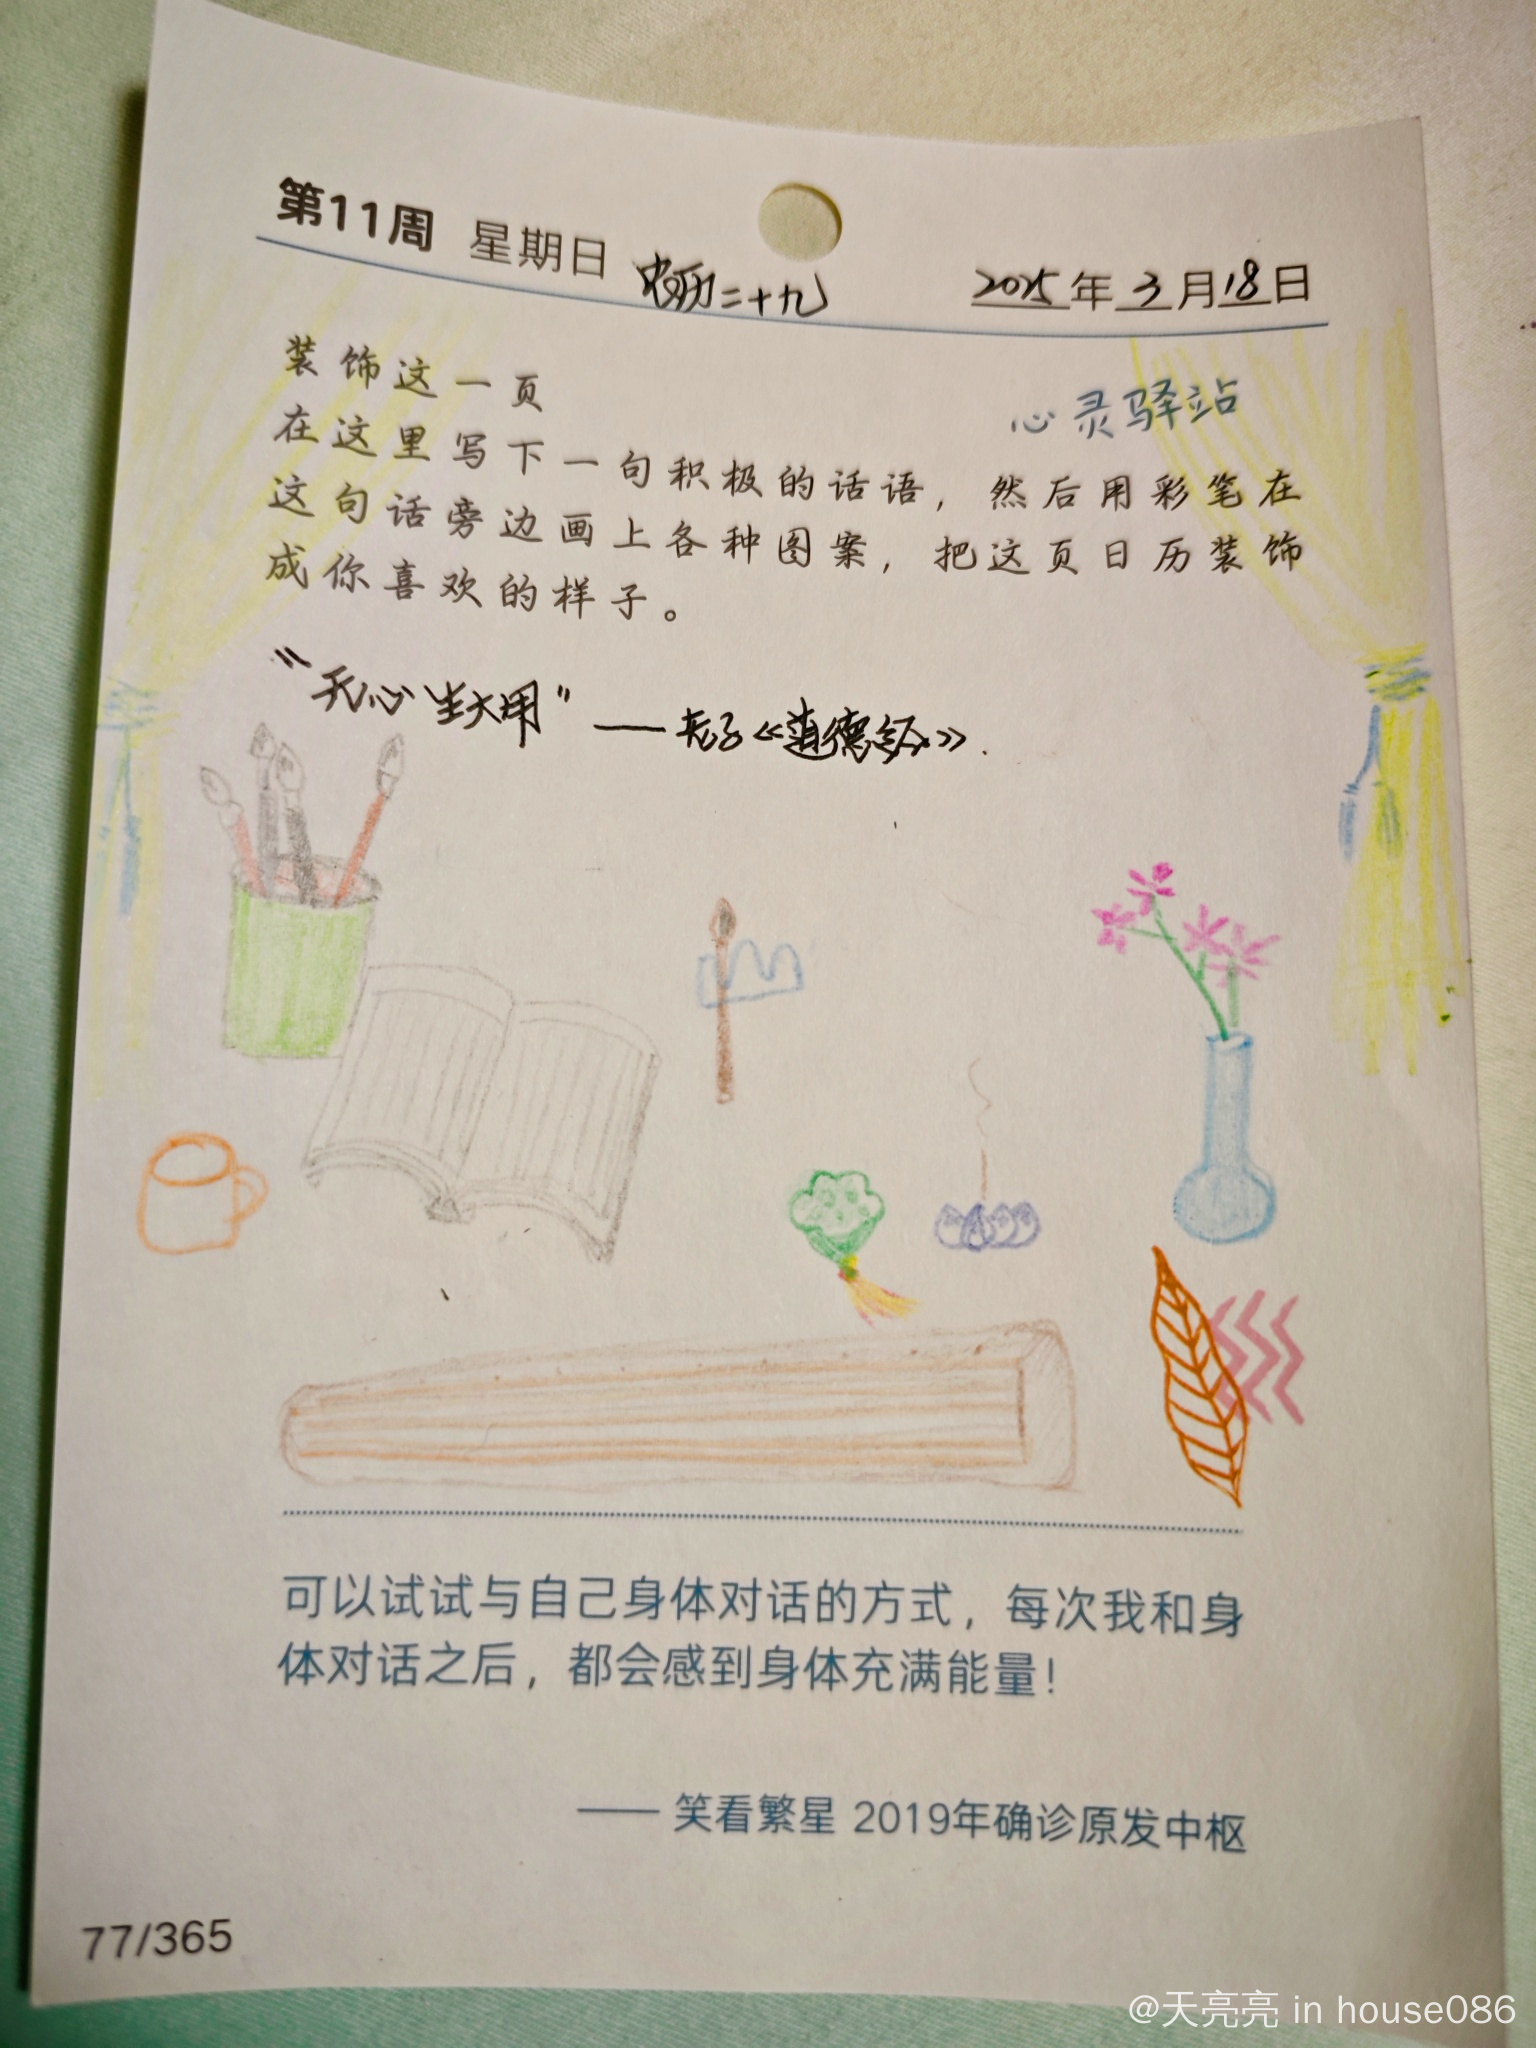 第11周 星期日 农历二十九 2025年3月18日
装饰这一页
心灵驿站
在这里写下一句积极的话语，然后用彩笔在
这句话旁边画上各种图案，把这页日历装饰
成你喜欢的样子。
"无心生大用" ——老子《道德经》.
可以试试与自己身体对话的方式，每次我和身
体对话之后，都会感到身体充满能量！
—— 笑看繁星 2019年确诊原发中枢
77/365
@天亮亮 in house086